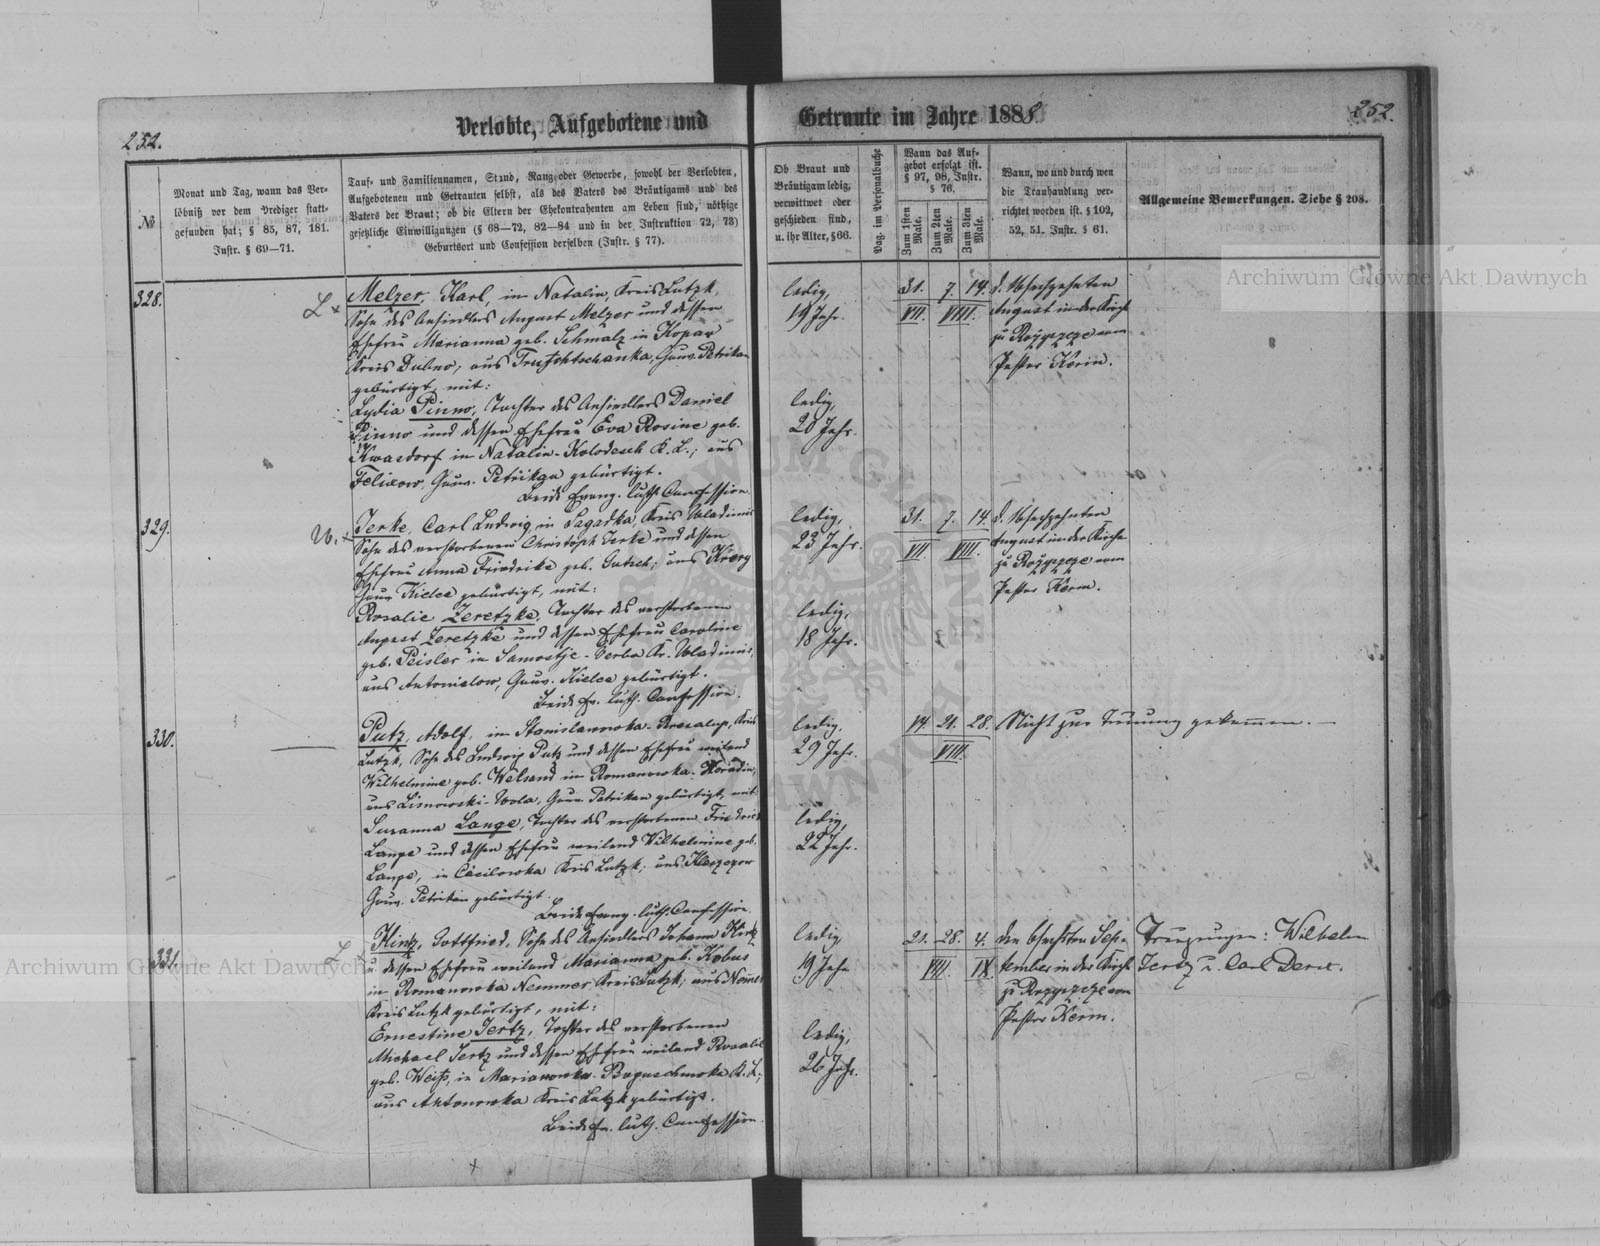 252.
Verlobte, Aufgebotene und
Getraute im Jahre 1888.
252.
№
Monat und Tag, wann das Ver-
löbniß vor dem Prediger statt-
gefunden hat; § 85, 87, 181.
Instr. § 69—71.
Tauf- und Familiennamen, Stand, Rang oder Gewerbe, sowohl der Verlobten,
Aufgebotenen und Getrauten selbst, als des Vaters des Bräutigams und des
Vaters der Braut; ob die Eltern der Ehekontrahenten am Leben sind, nöthige
gesetzliche Einwilligungen (§ 68—72, 82—84 und in der Instruktion 72, 73)
Geburtsort und Confession derselben (Instr. § 77).
Ob Braut und
Bräutigam ledig,
verwittwet oder
geschieden sind,
u. ihr Alter, § 66.
Pag. im Personalbuche
Wann das Auf-
gebot erfolgt ist.
§ 97, 98, Instr.
§ 76.
Zum 1sten Male.
Zum 2ten Male.
Zum 3ten Male.
Wann, wo und durch wen
die Trauhandlung ver-
richtet worden ist. § 102,
52, 51. Instr. § 61.
Allgemeine Bemerkungen. Siehe § 208.
328.
L
Melzer, Karl, in Natalin, Kreis Lutzk,
Sohn des Ansiedlers August Melzer und dessen
Ehefrau Marianna geb. Schmalz in Kopan
Kreis Dubno; aus Gouv. Petrikau
gebürtigt, mit:
Lydia Pinno, Tochter des Ansiedlers Daniel
Pinno und dessen Ehefrau Eva Rosine geb.
Kwasdorf in Natalin-Kolodesch K. L.; aus
Felixow, Gouv. Petrikau gebürtigt.
Beide Evang. luth. Confession.
ledig,
19 Jahr.
ledig,
20 Jahr.
31. 7. 14.
VII. VIII.
d. Vierzehnten
August in der Kirche
zu Rozyszcze vom
Pastor Kerm.
329.
W.
Jerke, Carl Ludwig in Sagadka, Kreis Wladimir
Sohn des verstorbenen Christoph Jerke und dessen
Ehefrau Anna Friedrike geb. Gutsch; aus
Gouv. Kielce gebürtigt, mit:
Rosalie Zeretzke, Tochter des verstorbenen
August Zeretzke und dessen Ehefrau Caroline
geb. Peisler in Samostje-Werba Kr. Wladimir,
aus Antonielow, Gouv. Kielce gebürtigt.
Beide Ev. luth. Confession.
ledig,
23 Jahr.
ledig,
18 Jahr.
31. 7. 14
VII. VIII.
August in der Kirche
zu Rozyszcze vom
Pastor Kerm.
330.
Putz, Adolf, in Stanislawowka-, Kreis
Lutzk, Sohn des Ludwig Putz und dessen Ehefrau weiland
Wilhelmine geb. Welsand in Romanowka-
aus Lisnowski-Wola, Gouv. Petrikau gebürtigt, mit:
Susanna Lange, Tochter des verstorbenen Friedrich
Lange und dessen Ehefrau weiland Wilhelmine geb.
Lange, in Cäcilowka Kreis Lutzk; aus
Gouv. Petrikau gebürtigt.
Beide Evang. luth. Confession.
ledig,
29 Jahr.
ledig,
22 Jahr.
14. 21. 28.
VIII.
Nicht zur Trauung gekommen. —
331.
L
Kintz, Gottfried, Sohn des Ansiedlers Johann Kintz
u. dessen Ehefrau weiland Marianna geb. Kobus
in Romanowka Kreis Lutzk; aus
Kreis Lutzk gebürtigt, mit:
Ernestine Jertz, Tochter des verstorbenen
Michael Jertz und dessen Ehefrau weiland Rosalie
geb. Weiß, in Marianowka- K. L.;
aus Antonowka Kreis Lutzk gebürtigt.
Beide Ev. luth. Confession.
ledig
19 Jahr
ledig,
26 Jahr.
21. 28. 4.
VIII. IX.
den Sep-
tember in der Kirche
zu Rozyszcze vom
Pastor Kerm.
Trauzeugen: Wilhelm
Jertz u. Carl
Archiwum Główne Akt Dawnych
Archiwum Główne Akt Dawnych